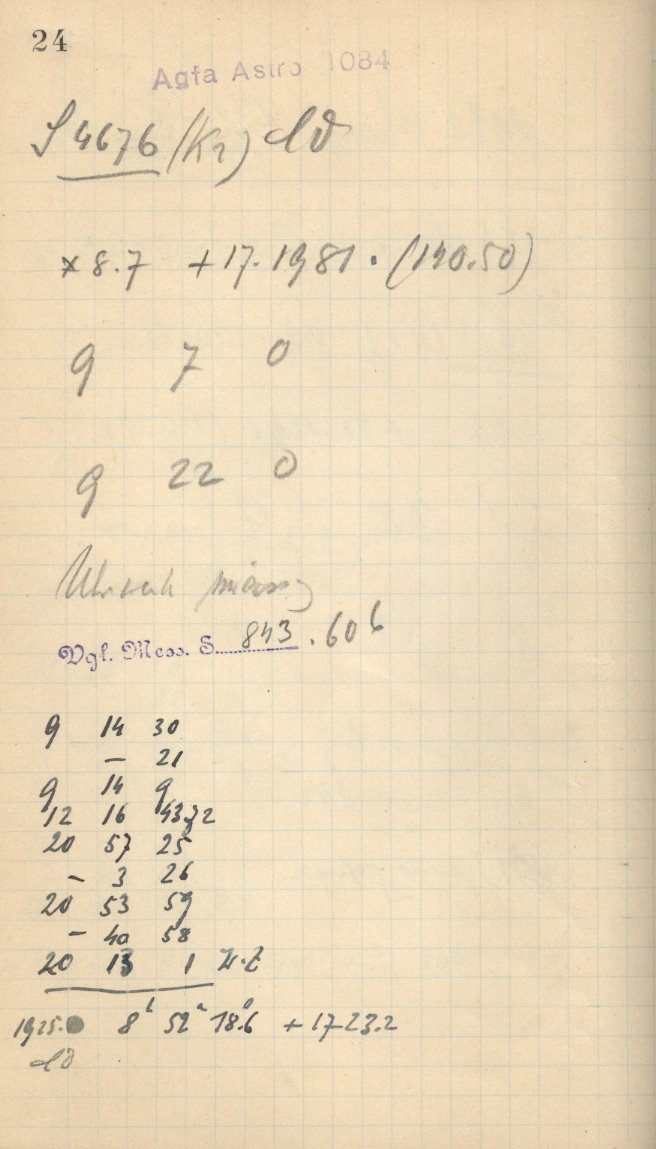 24
Agfa Astro 1084
S 4676 (Kr)
× 8.7 +17.1981 . (140.50)
9 7 0
9 22 0
Vgl. Mess. S. 843 . 60
9 14 30
- 21
9 14 9
12 16
20 57 25
- 3 26
20 53 59
- 40 58
20 13 1
1925.0 8h 52m 18.6 + 17 23.2